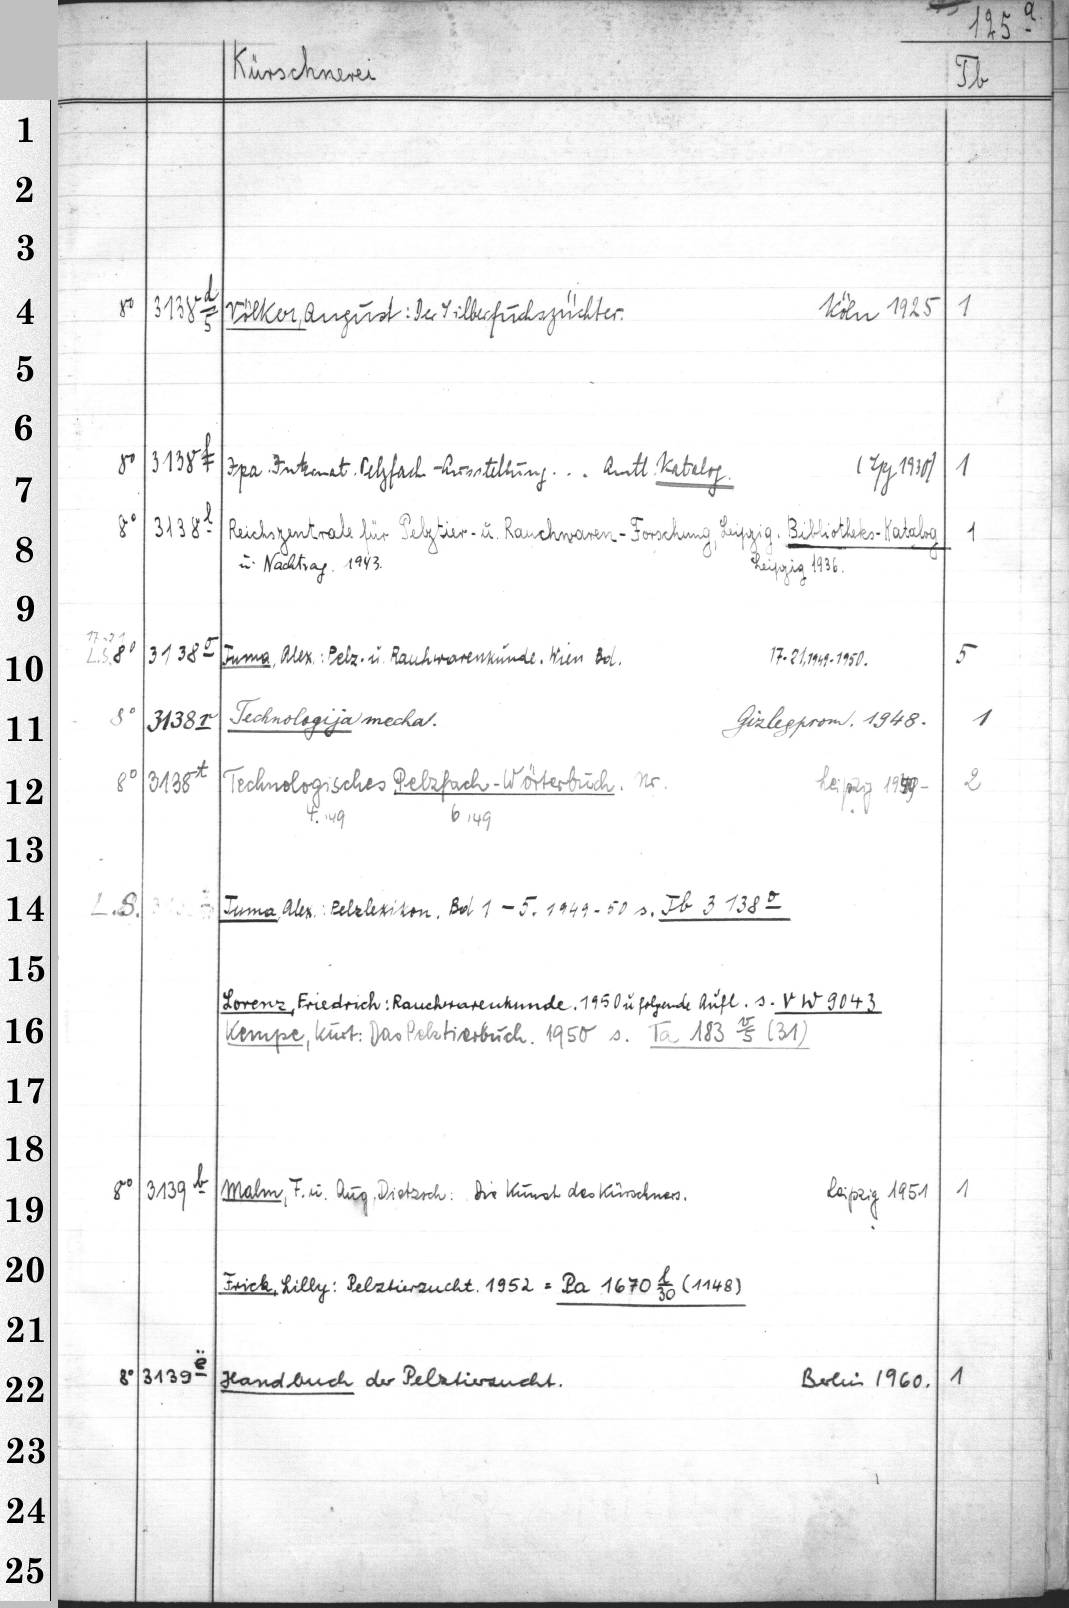 125 a
Kürschnerei Tb
1
2
3
4 8° 3138 d/5 Völker, August: Der Silberfuchszüchter. Köln 1925 1
5
6
7 8° 3138 f Ipa. Internat. Pelzfach-Ausstellung . . . Amtl. Katalog. (Lpz 1930) 1
8 8° 3138 l Reichszentrale für Pelztier- u. Rauchwaren-Forschung, Leipzig. Bibliotheks-Katalog 1
u. Nachtrag. 1943. Leipzig 1936.
9
17-21
10 L.S. 8° 3138 o Tuma, Alex.: Pelz- u. Rauhwarenkunde. Wien Bd. 17-21, 1949-1950. 5
11 8° 3138 r Technologija mecha. Gizlegprom. 1948. 1
12 8° 3138 t Technologisches Pelzfach-Wörterbuch. Nr. Leipzig 1949- 2
4.'49 6'49
13
14 L.S. Tuma, Alex.: Pelzlexikon. Bd 1-5. 1949-50 s. Tb 3138 o
15
Lorenz, Friedrich: Rauchwarenkunde. 1950 u folgende Aufl. s. VW 9043
16 Kempe, Kurt: Das Pelztierbuch. 1950 s. Ta 183 v/5 (31)
17
18
19 8° 3139 b Malm, F. u. Aug. Dietzsch: Die Kunst des Kürschners. Leipzig 1951 1
20 Frick, Lilly: Pelztierzucht. 1952 = Pa 1670 l/30 (1148)
21
22 8° 3139 ë Handbuch der Pelztierzucht. Berlin 1960. 1
23
24
25